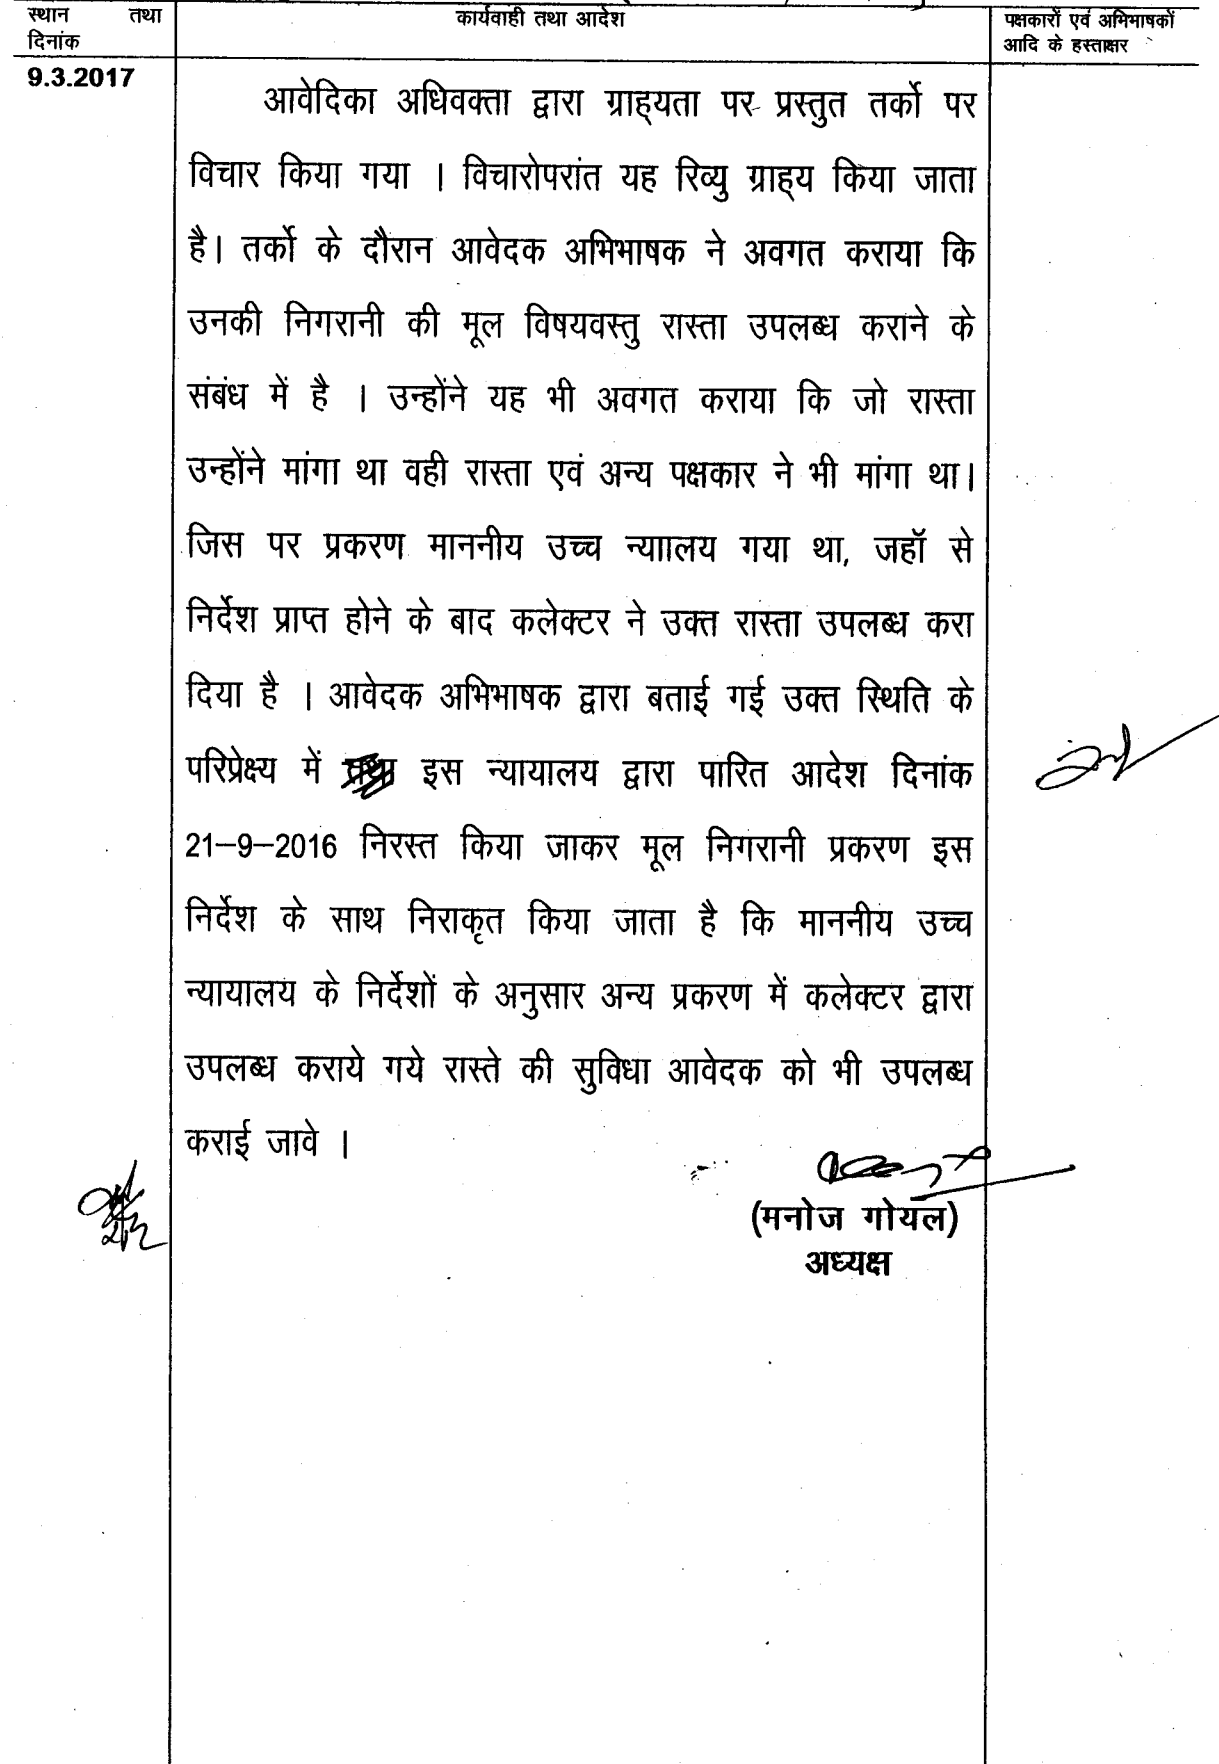 स्थान तथा
दिनांक
कार्यवाही तथा आदेश
पक्षकारों एवं अभिभाषकों
आदि के हस्ताक्षर
9.3.2017
आवेदिका अधिवक्ता द्वारा ग्राह्यता पर प्रस्तुत तर्को पर
विचार किया गया । विचारोपरांत यह रिव्यु ग्राह्य किया जाता
है। तर्को के दौरान आवेदक अभिभाषक ने अवगत कराया कि
उनकी निगरानी की मूल विषयवस्तु रास्ता उपलब्ध कराने के
संबंध में है । उन्होंने यह भी अवगत कराया कि जो रास्ता
उन्होंने मांगा था वही रास्ता एवं अन्य पक्षकार ने भी मांगा था।
जिस पर प्रकरण माननीय उच्च न्याालय गया था, जहॉ से
निर्देश प्राप्त होने के बाद कलेक्टर ने उक्त रास्ता उपलब्ध करा
दिया है । आवेदक अभिभाषक द्वारा बताई गई उक्त स्थिति के
परिप्रेक्ष्य में इस न्यायालय द्वारा पारित आदेश दिनांक
21–9–2016 निरस्त किया जाकर मूल निगरानी प्रकरण इस
निर्देश के साथ निराकृत किया जाता है कि माननीय उच्च
न्यायालय के निर्देशों के अनुसार अन्य प्रकरण में कलेक्टर द्वारा
उपलब्ध कराये गये रास्ते की सुविधा आवेदक को भी उपलब्ध
कराई जावे ।
(मनोज गोयल)
अध्यक्ष